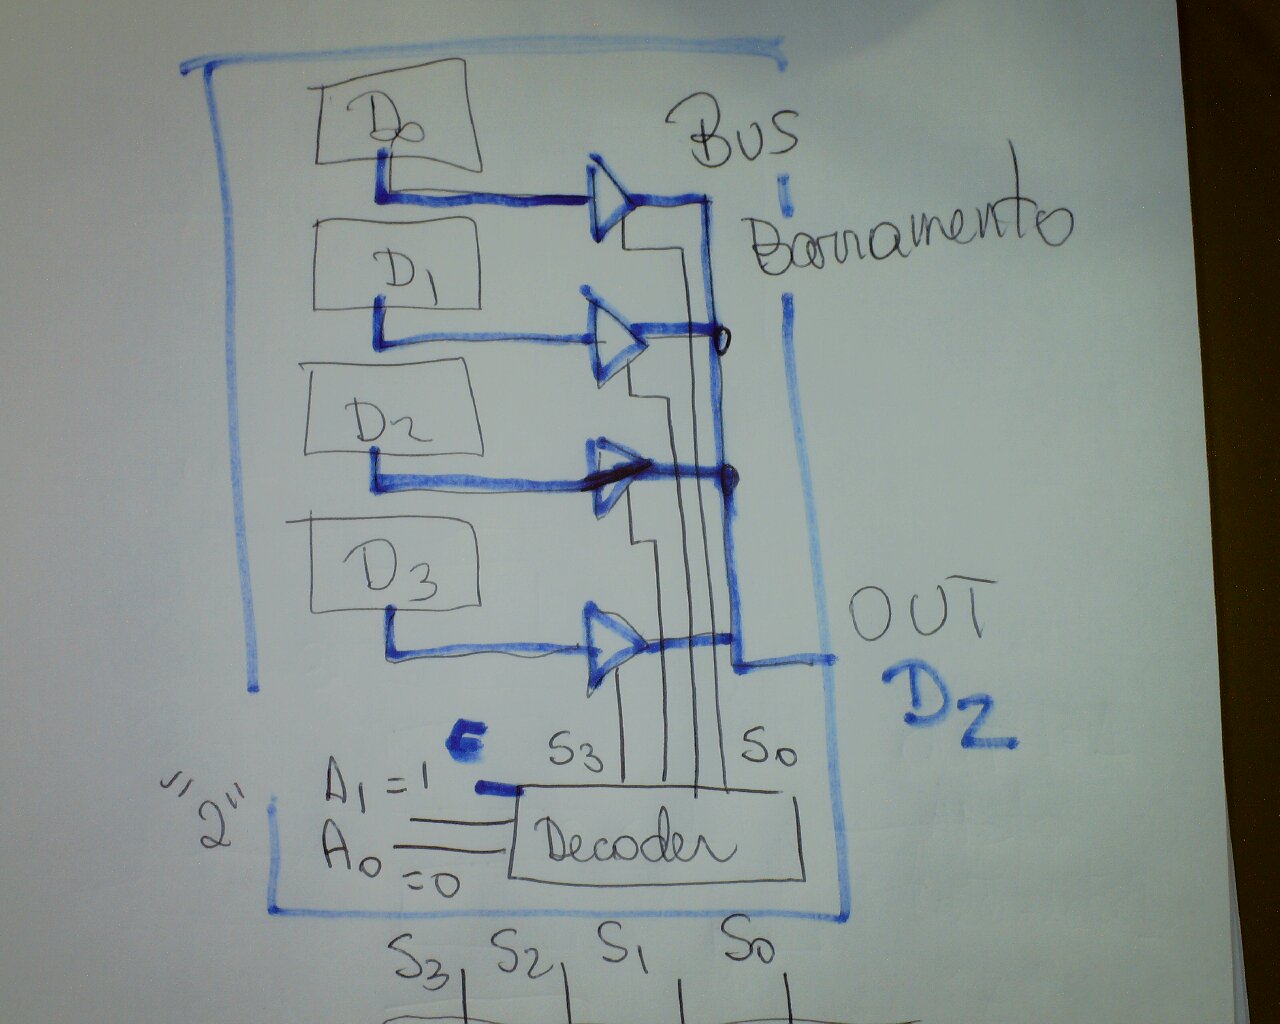 D0
BUS
Barramento
D1
D2
D3
OUT
D2
E
S3 S0
"2"
A1 = 1
A0 = 0
Decoder
S3 S2 S1 S0